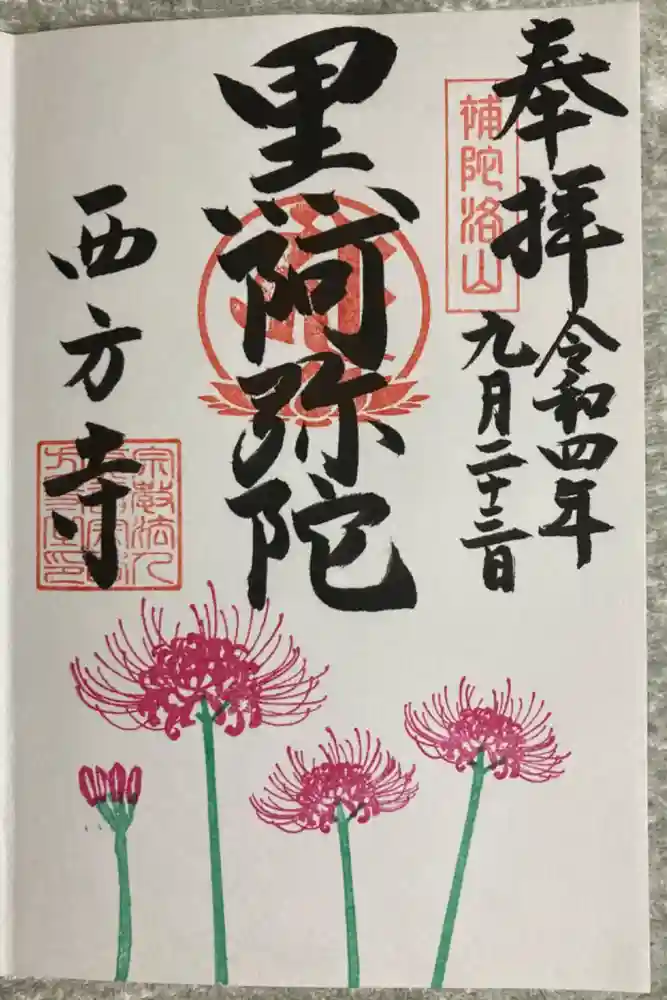 奉拝
補陀洛山
令和四年
九月二十三日
黒阿弥陀
西方寺